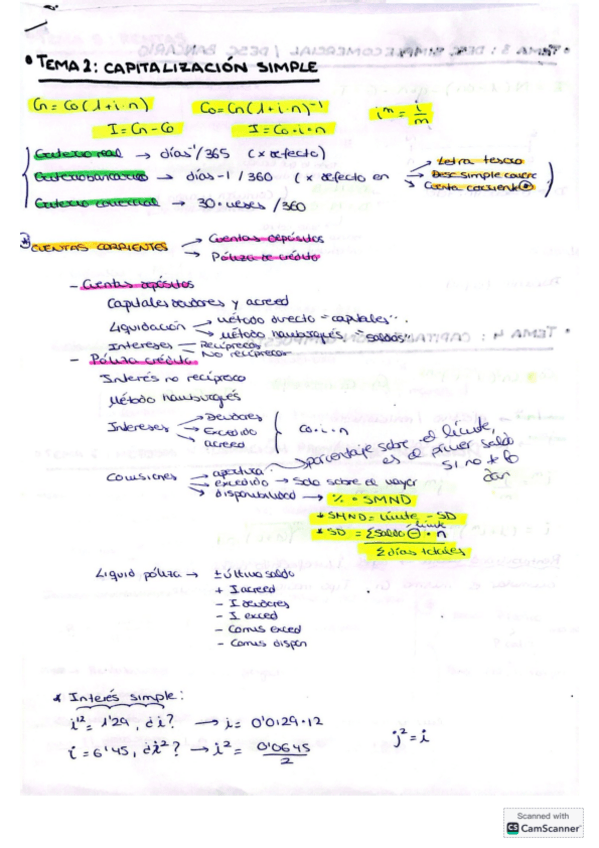 • TEMA 2: CAPITALIZACIÓN SIMPLE
Cn = Co (1+i·n)
Co = Cn (1+i·n)⁻¹
iᵐ = i/m
I = Cn - Co
I = Co·i·n
Criterio real → días⁻¹/365 (x defecto)
Criterio bancario → días-1/360 (x defecto en → Letra tesoro
→ Desc simple comerc
→ Cuenta corriente)
Criterio comercial → 30·meses/360
CUENTAS CORRIENTES → Cuentas depósitos
→ Póliza de crédito
- Cuentas depósitos
Capitales deudores y acreed
Liquidación → método directo "capitales".
→ método hamburgués "saldos"
Intereses → Recíprocos
→ No recíprocos
- Póliza crédito
Interés no recíproco
Método hamburgués
Intereses → Deudores
→ Excedido
→ acreed
Co·i·n
Comisiones → apertura: → porcentaje sobre el límite,
es el primer saldo
si no te lo
dan
→ excedido → Solo sobre el mayor
→ disponibilidad → % · SMND
* SMND = Límite - SD
* SD = Σ Saldo ⊖ límite · n
Σ días totales
Liquid póliza → ± último saldo
+ I acreed
- I deudores
- I exced
- Comis exced
- Comis dispon
* Interés simple:
i¹² = 1'29, ¿i? → i = 0'0129·12
i = 6'45, ¿i²? → i² = 0'0645/2
j² = i
Scanned with
CS CamScanner